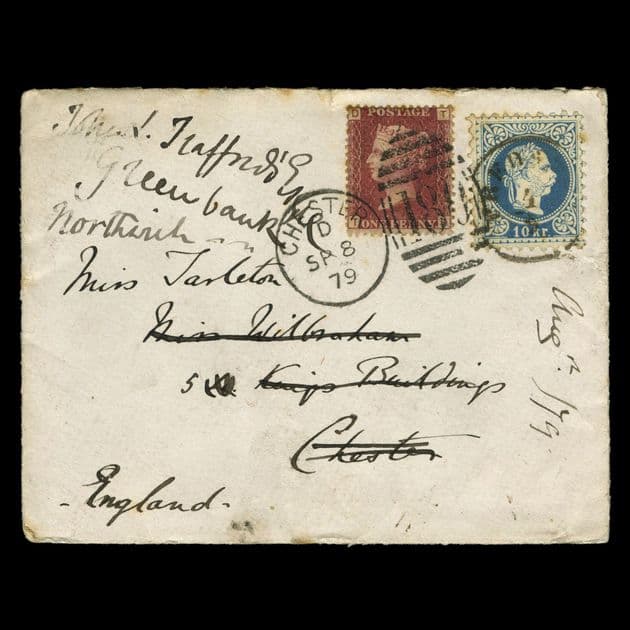 John. Trafford Esq
Greenbank
Northwich
Miss Tarleton
Miss Wilbraham
5 Kings Buildings
Chester
England
Augn /79
D POSTAGE T
ONE PENNY
CHESTER
D
SA 8
79
10 kr.